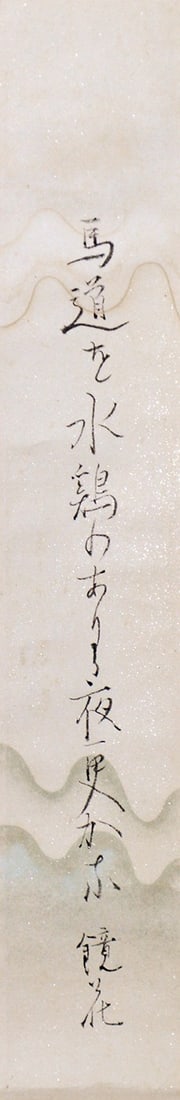 馬道を水鶏のありく夜更かな 鏡花